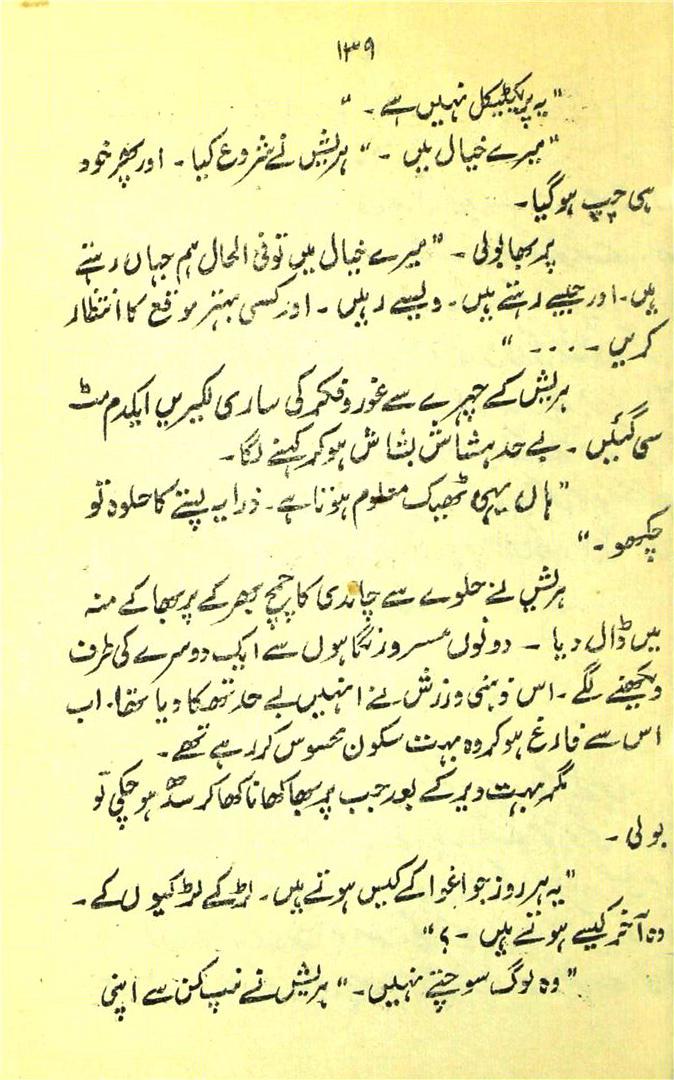 ۱۳۹
"یہ پریکٹیکل نہیں ہے۔"
"میرے خیال میں ۔" ہریش نے شروع کیا۔ اور پھر خود
ہی چپ ہو گیا۔
پربھا بولی۔ "میرے خیال میں تو فی الحال ہم جہاں رہتے
ہیں۔ اور جیسے رہتے ہیں۔ ویسے رہیں۔ اور کسی بہتر موقع کا انتظار
کریں ۔۔۔۔"
ہریش کے چہرے سے غور و فکر کی ساری لکیریں ایکدم مٹ
سی گئیں۔ بے حد ہشاش بشاش ہو کر کہنے لگا۔
"ہاں یہی ٹھیک معلوم ہوتا ہے۔ ذرا یہ پستے کا حلوہ تو
چکھو۔"
ہریش نے حلوے سے چاندی کا چمچ بھر کے پربھا کے منہ
میں ڈال دیا ۔ دونوں مسرور نگاہوں سے ایک دوسرے کی طرف
دیکھنے لگے۔ اس ذہنی ورزش نے انہیں بے حد تھکا دیا تھا۔ اب
اس سے فارغ ہو کر وہ بہت سکون محسوس کر رہے تھے۔
مگر بہت دیر کے بعد جب پربھا کھانا کھا کر سدھ ہو چکی تو
بولی۔
"یہ ہر روز جو اغوا کے کیس ہوتے ہیں۔ لڑکے لڑکیوں کے۔
وہ آخر کیسے ہوتے ہیں ۔؟"
"وہ لوگ سوچتے نہیں۔" ہریش نے نیپ کن سے اپنی